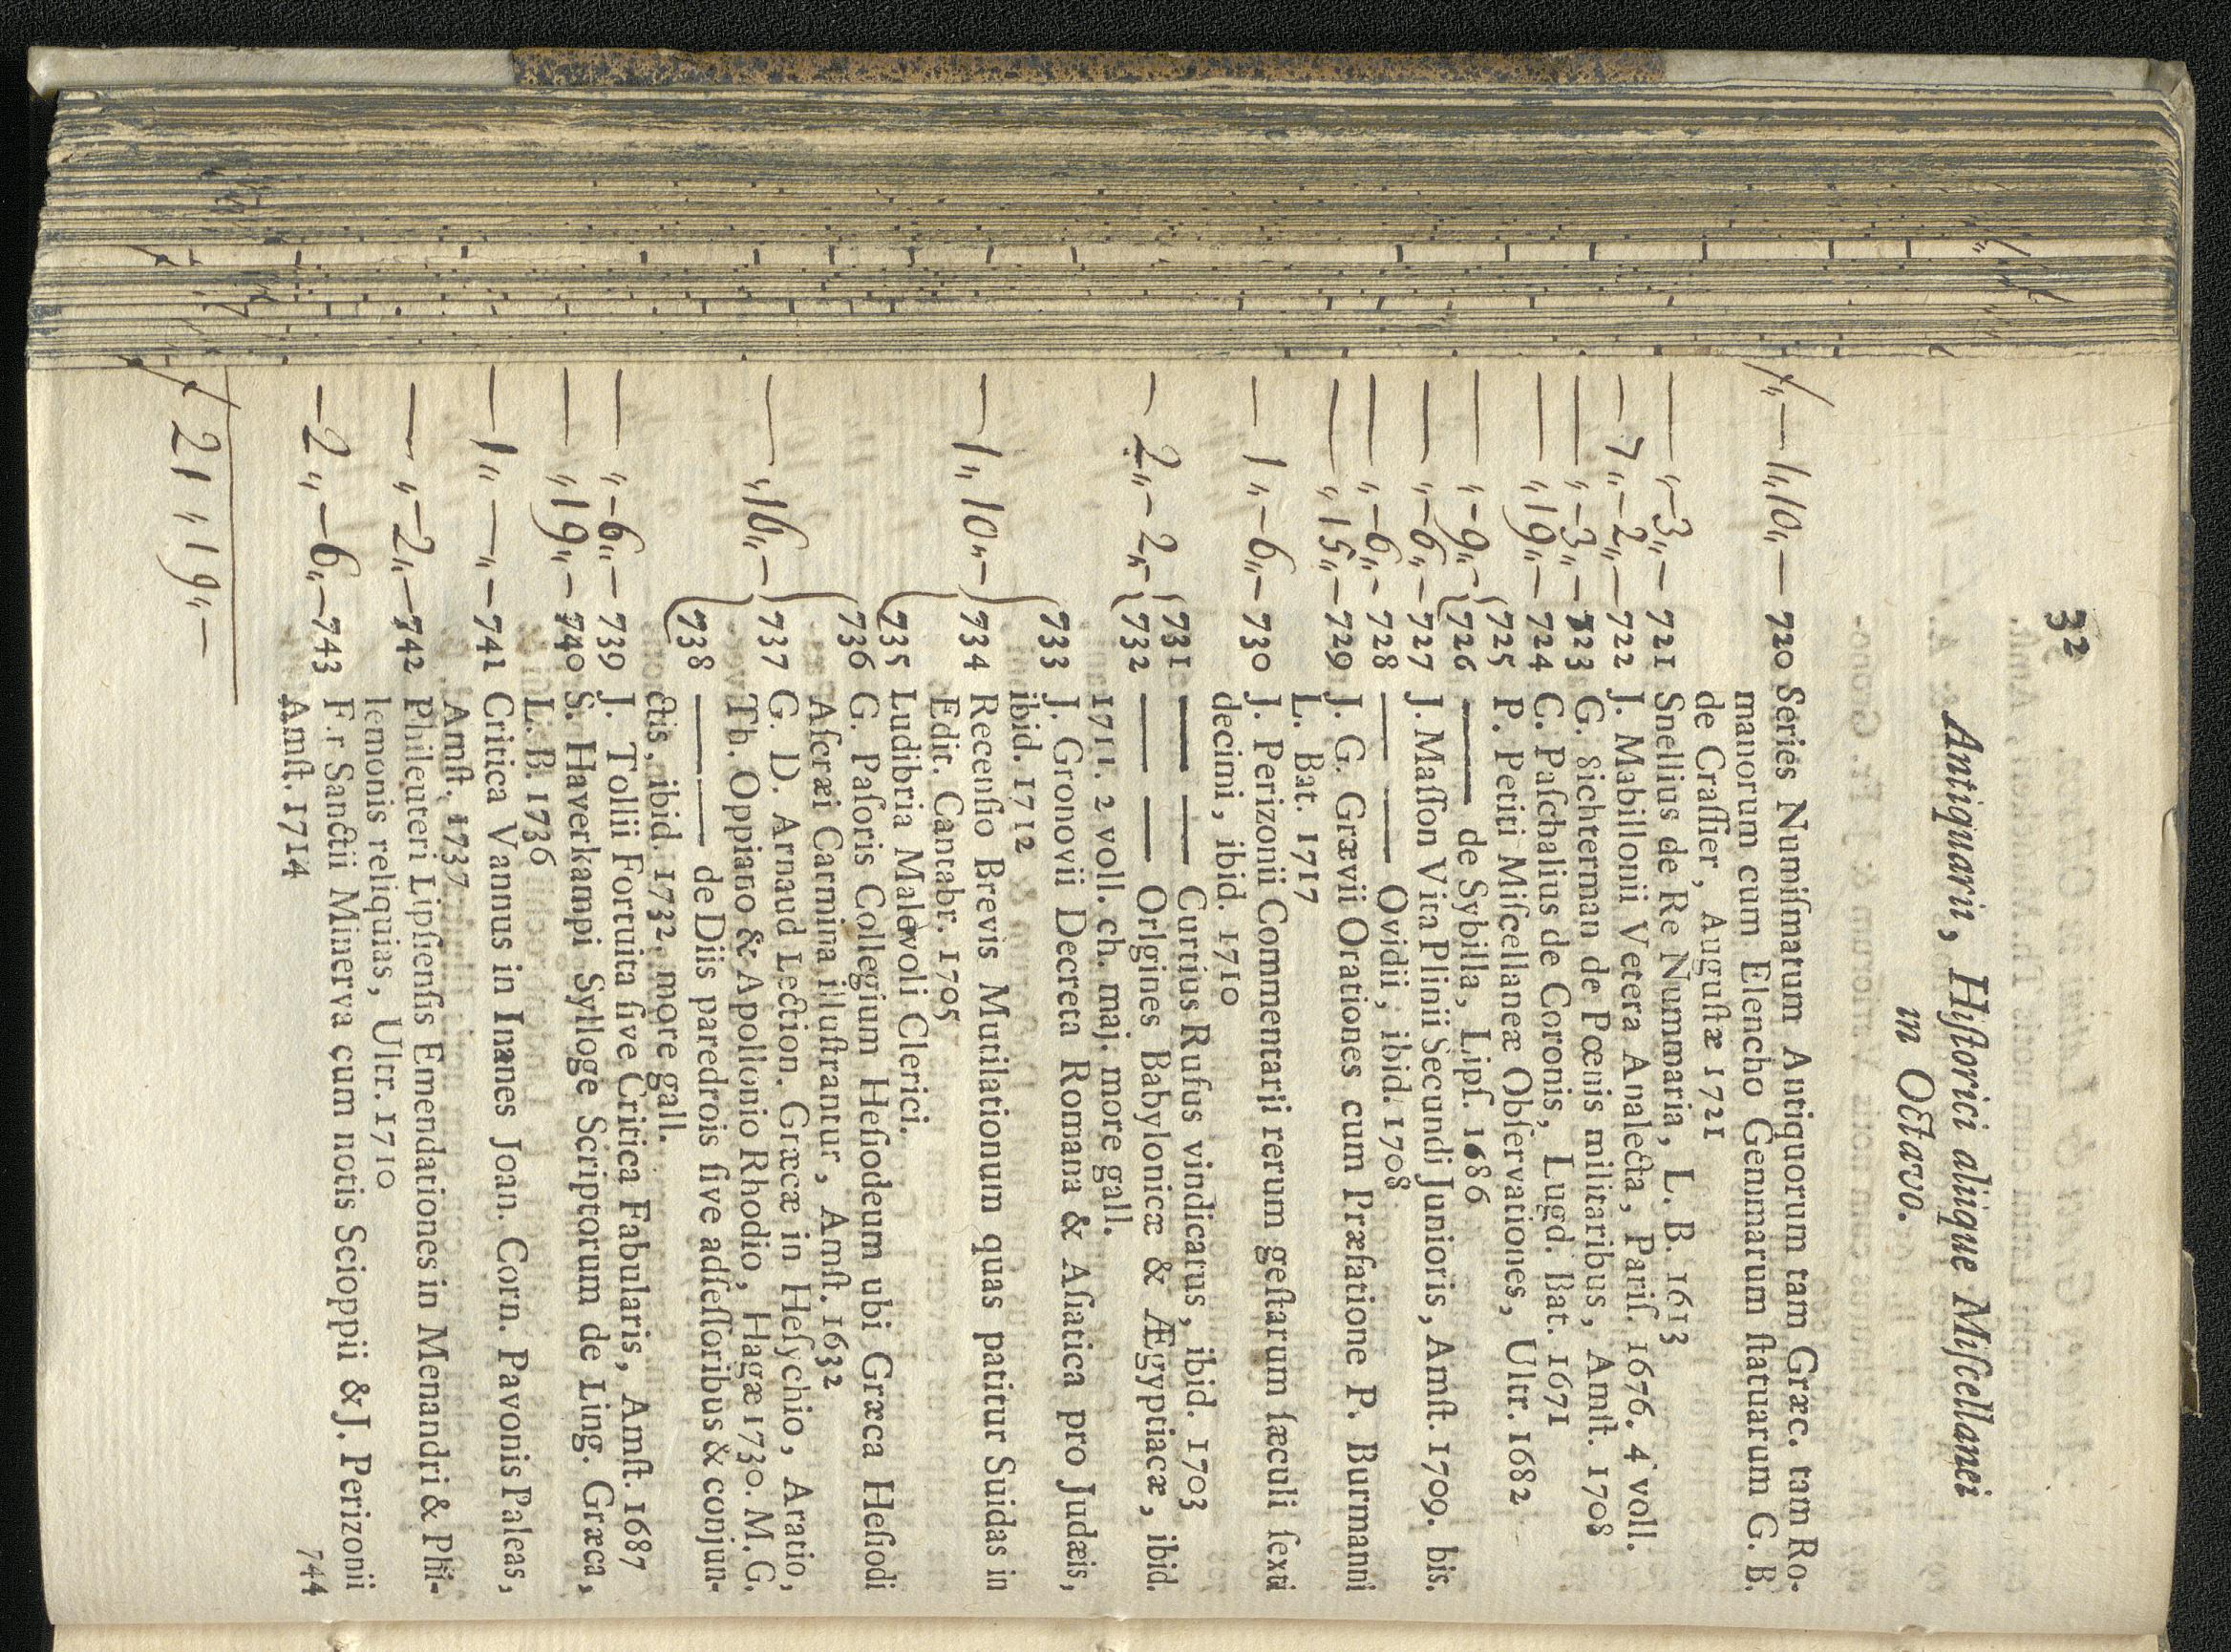 32
Antiquarii, Hiſtorici aliique Miſcellanei
in Octavo.
ƒ „— 1„ 10„ — 720 Series Numiſmatum Antiquorum tam Græc. tam Ro-
manorum cum Elencho Gemmarum ſtatuarum G. B.
de Craſſier, Auguſtæ 1721
— „ — 3„ — 721 Snellius de Re Nummaria, L. B. 1613
— 7„ — 2„ — 722 J. Mabillonii Vetera Analecta, Pariſ. 1676. 4 voll.
— „ — 3„ — 723 G. Sichterman de Pœnis militaribus, Amſt. 1708
— „ 19„ — 724 C. Paſchalius de Coronis, Lugd. Bat. 1671
725 P. Petiti Miſcellaneæ Obſervationes, Ultr. 1682
— „ — 9„ — { 726 —— de Sybilla, Lipſ. 1686
— „ — 6„ — 727 J. Maſſon Vita Plinii Secundi Junioris, Amſt. 1709. bis.
— „ — 6„ — 728 —— —— Ovidii, ibid. 1708
— „ 15„ — 729 J. G. Grævii Orationes cum Præfatione P. Burmanni
L. Bat. 1717
— 1 „ — 6„ — 730 J. Perizonii Commentarii rerum geſtarum ſæculi ſexti
decimi, ibid. 1710
731 —— —— Curtius Rufus vindicatus, ibid. 1703
— 2„ — 2„ — { 732 —— —— Orlgines Babylonicæ & Ægyptiacæ, ibid.
1711. 2 voll. ch. maj. more gall.
733 J. Gronovii Decreta Romana & Aſiatica pro Judæis,
ibid. 1712
— 1„ 10„ — { 734 Recenſio Brevis Mutilationum quas patitur Suidas in
Edit. Cantabr. 1705
735 Ludibria Malevoli Clerici.
736 G. Paſoris Collegium Heſiodeum ubi Græca Heſiodi
Aſcræi Carmina illuſtrantur, Amſt. 1632
— „ 16„ — { 737 G. D. Arnaud Lection. Græcæ in Heſychio, Aratio,
Th. Oppiano & Apollonio Rhodio, Hagæ 1730. M. G.
738 —— —— de Diis paredrois ſive adſeſſoribus & conjun-
ctis, ibid. 1732. more gall.
— „ — 6„ — 739 J. Tollii Fortuita ſive Critica Fabularis, Amſt. 1687
— „ 19„ — 740 S. Haverkampi Sylloge Scriptorum de Ling. Græca,
L. B. 1736
— 1„ — „ — 741 Critica Vannus in Inanes Joan. Corn. Pavonis Paleas,
Amſt. 1737
— „ — 2„ — 742 Phileuteri Lipſienſis Emendationes in Menandri & Phi-
lemonis reliquias, Ultr. 1710
— 2 „ — 6„ — 743 F.r Sanctii Minerva cum notis Scioppii & J. Perizonii
Amſt. 1714
744
ƒ 21 „ 19„ —